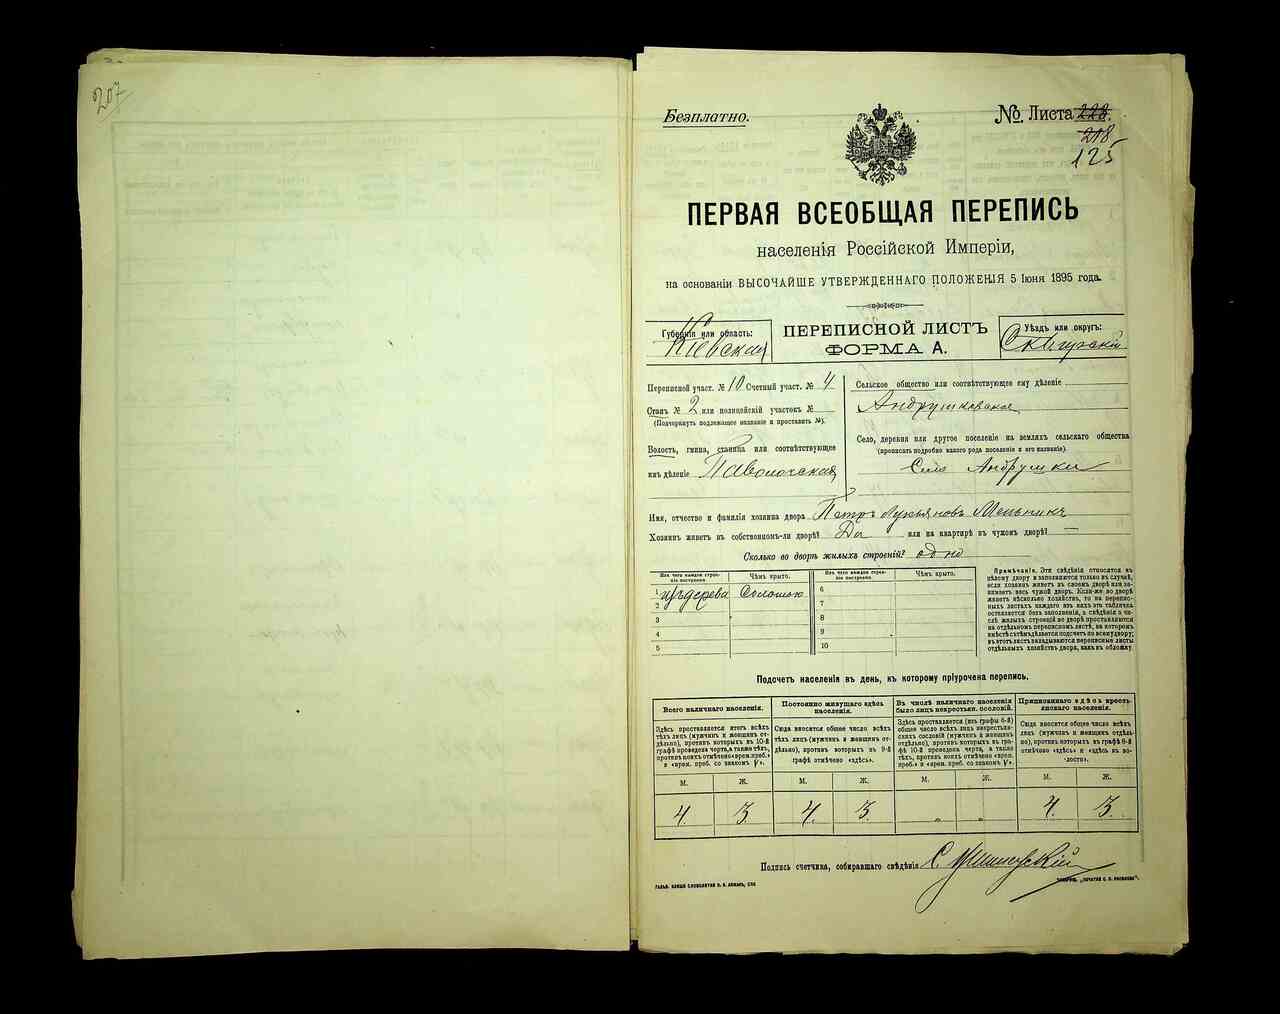 207
Безплатно.
№ Листа 228.
208
125
ПЕРВАЯ ВСЕОБЩАЯ ПЕРЕПИСЬ
населенія Россійской Имперіи,
на основаніи ВЫСОЧАЙШЕ УТВЕРЖДЕННАГО ПОЛОЖЕНІЯ 5 Іюня 1895 года.
Губернія или область:
Кіевская
ПЕРЕПИСНОЙ ЛИСТЪ
ФОРМА А.
Уѣздъ или округъ:
Сквирскій
Переписной участ. № 10 Счетный участ. № 4
Станъ № 2 или полицейскій участокъ №
(Подчеркнуть подлежащее названіе и проставить №).
Волость, гмина, станица или соотвѣтствующее
имъ дѣленіе Паволочская
Сельское общество или соотвѣтствующее ему дѣленіе
Андрушковское
Село, деревня или другое поселеніе на земляхъ сельскаго общества
(прописать подробно какого рода поселеніе и его названіе).
Село Андрушки
Имя, отчество и фамилія хозяина двора Петръ Лукьяновъ Мельникъ
Хозяинъ живетъ въ собственномъ-ли дворѣ? Да или на квартирѣ въ чужомъ дворѣ? —
Сколько во дворѣ жилыхъ строеній? одно
Изъ чего каждое строеніе построено. Чѣмъ крыто. Изъ чего каждое строеніе построено. Чѣмъ крыто.
1 изъ дерева Соломою 6
2 7
3 8
4 9
5 10
Примѣчаніе. Эти свѣдѣнія относятся къ
цѣлому двору и заполняются только въ случаѣ,
если хозяинъ живетъ въ своемъ дворѣ или занимаетъ
весь чужой дворъ. Если-же во дворѣ
живетъ нѣсколько хозяйствъ, то на переписныхъ
листахъ каждаго изъ нихъ эта табличка
оставляется безъ заполненія, а свѣдѣнія о числѣ
жилыхъ строеній во дворѣ проставляются
на отдѣльномъ переписномъ листѣ, на которомъ
вмѣстѣ съ тѣмъ дѣлается подсчетъ по всему двору;
въ этотъ листъ вкладываются переписные листы
отдѣльныхъ хозяйствъ двора, какъ въ обложку.
Подсчетъ населенія въ день, къ которому пріурочена перепись.
Всего наличнаго населенія.
Здѣсь проставляется итогъ всѣхъ
тѣхъ лицъ (мужчинъ и женщинъ отдѣльно),
противъ которыхъ въ 10-й
графѣ проведена черта, а также тѣхъ,
противъ коихъ отмѣчено «врем. преб.»
и «врем. преб. со знакомъ V».
Постоянно живущаго здѣсь
населенія.
Сюда вносится общее число всѣхъ
тѣхъ лицъ (мужчинъ и женщинъ отдѣльно),
противъ которыхъ въ 9-й
графѣ отмѣчено «здѣсь».
Въ числѣ наличнаго населенія
было лицъ некрестьян. сословій.
Здѣсь проставляется (изъ графы 6-й)
общее число всѣхъ лицъ некрестьянскихъ
сословій (мужчинъ и женщинъ
отдѣльно), противъ которыхъ въ графѣ
10-й проведена черта, а также
тѣхъ, противъ коихъ отмѣчено «врем.
преб.» и «врем. преб. со знакомъ V».
Приписаннаго здѣсь крестьянскаго
населенія.
Сюда вносится общее число всѣхъ
лицъ (мужчинъ и женщинъ отдѣльно),
противъ которыхъ въ графѣ 8-й
отмѣчено «здѣсь» и «здѣсь въ волости».
М. Ж. М. Ж. М. Ж. М. Ж.
4. 3. 4. 3. 4. 3.
Подпись счетчика, собиравшаго свѣдѣнія